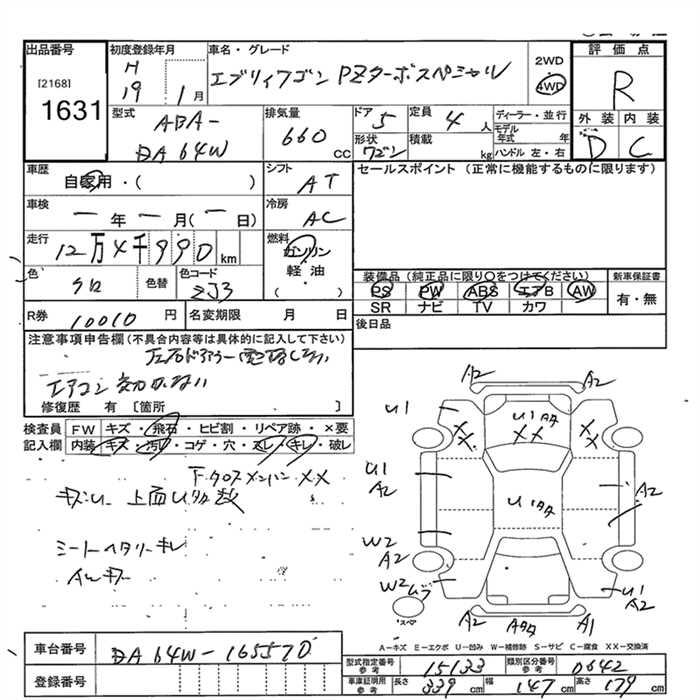 出品番号
[2168]
1631
初度登録年月
H 19年 1月
車名・グレード
エブリィワゴン PZターボスペシャル
2WD
4WD
評価点
R
外装 内装
D C
型式
ABA-
DA64W
排気量
660 cc
ドア 5
形状
ワゴン
定員 4 人
積載 kg
ディーラー・並行
モデル年式 年
ハンドル 左・右
車歴
自家用・( )
シフト
AT
セールスポイント (正常に機能するものに限ります)
車検
ー年ー月(ー日)
冷房
AC
走行
12万4千990 km
燃料
ガソリン
軽油・
( )
色
クロ
色替
色コード
ZJ3
装備品(純正品に限り○をつけてください)
PS PW ABS エアB AW
SR ナビ TV カワ
新車保証書
有・無
R券 10010 円
名変期限 月 日
後日品
注意事項申告欄(不具合内容等は具体的に記入して下さい)
エアコン効かない
修復歴 有 [箇所 ]
検査員記入欄
FW キズ・飛石・ヒビ割・リペア跡・×要
内装 キズ・汚れ・コゲ・穴・スレ・キレ・破レ
下クロスメンバー XX
キズU 上面U多数
シートヘタリキレ
AWキズ
A2 A2
U1 U1アタ
XX XX XX
U1
A2
U1アタ
A2
W2
A2
W2
U1
A2
スペア
A2 アタ A1
A-キズ E-エクボ U-凹み W-補修跡 S-サビ C-腐食 XX-交換済
車台番号
DA64W-165570
登録番号
型式指定番号 参考
15133
類別区分番号 参考
0642
車庫証明用 参考
長さ 339 cm 幅 147 cm 高さ 179 cm